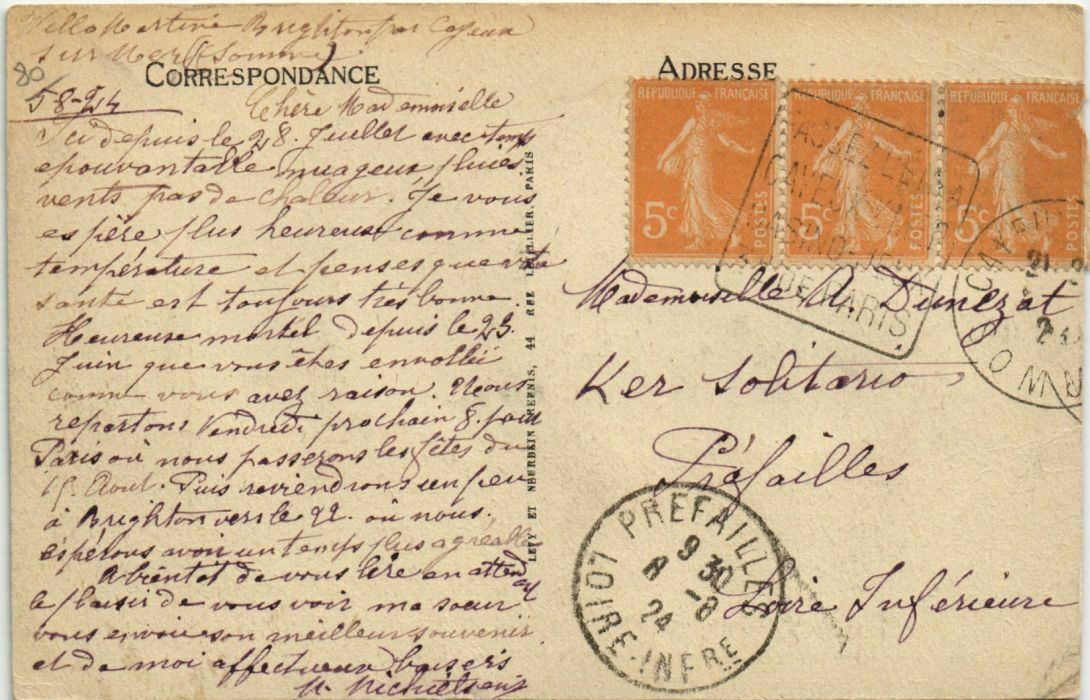 Villa Martine Brighton par Cayeux
sur Mer (Somme)
80
CORRESPONDANCE
5 8-24
Chère Mademoiselle
Ici depuis le 28. Juillet avec temps
epouvantable. nuageux, pluies
vents pas de chaleur. Je vous
espère plus heureuse comme
température et penses que
santé est toujours très bonne.
Heureuse mortel depuis le 23
Juin que vous êtes
comme vous avez raison. Nous
repartons Vendredi prochain 8. pour
Paris où nous passerons les fêtes du
15. Aout. Puis reviendrons un peu
à Brighton vers le 22. où nous
espérons avoir un temps plus agréable
A bientôt de vous lire en attendant
le plaisir de vous voir ma soeur
vous envoie son meilleur souvenir
et de moi affectueux baisers
LEVY ET NEURDEIN REUNIS, 44 RUE LETELLIER, PARIS
ADRESSE
REPUBLIQUE FRANÇAISE
5c
POSTES
REPUBLIQUE FRANÇAISE
5c
POSTES
REPUBLIQUE FRANÇAISE
5c
POSTES
PASSEZ L'ÉTÉ A
CAYEUX
CASINO
DE PARIS
Mademoiselle A.
Ker Solitario
Préfailles
Loire Inférieure
PREFAILLES
9 30
8 - 8
24
LOIRE-INFRE